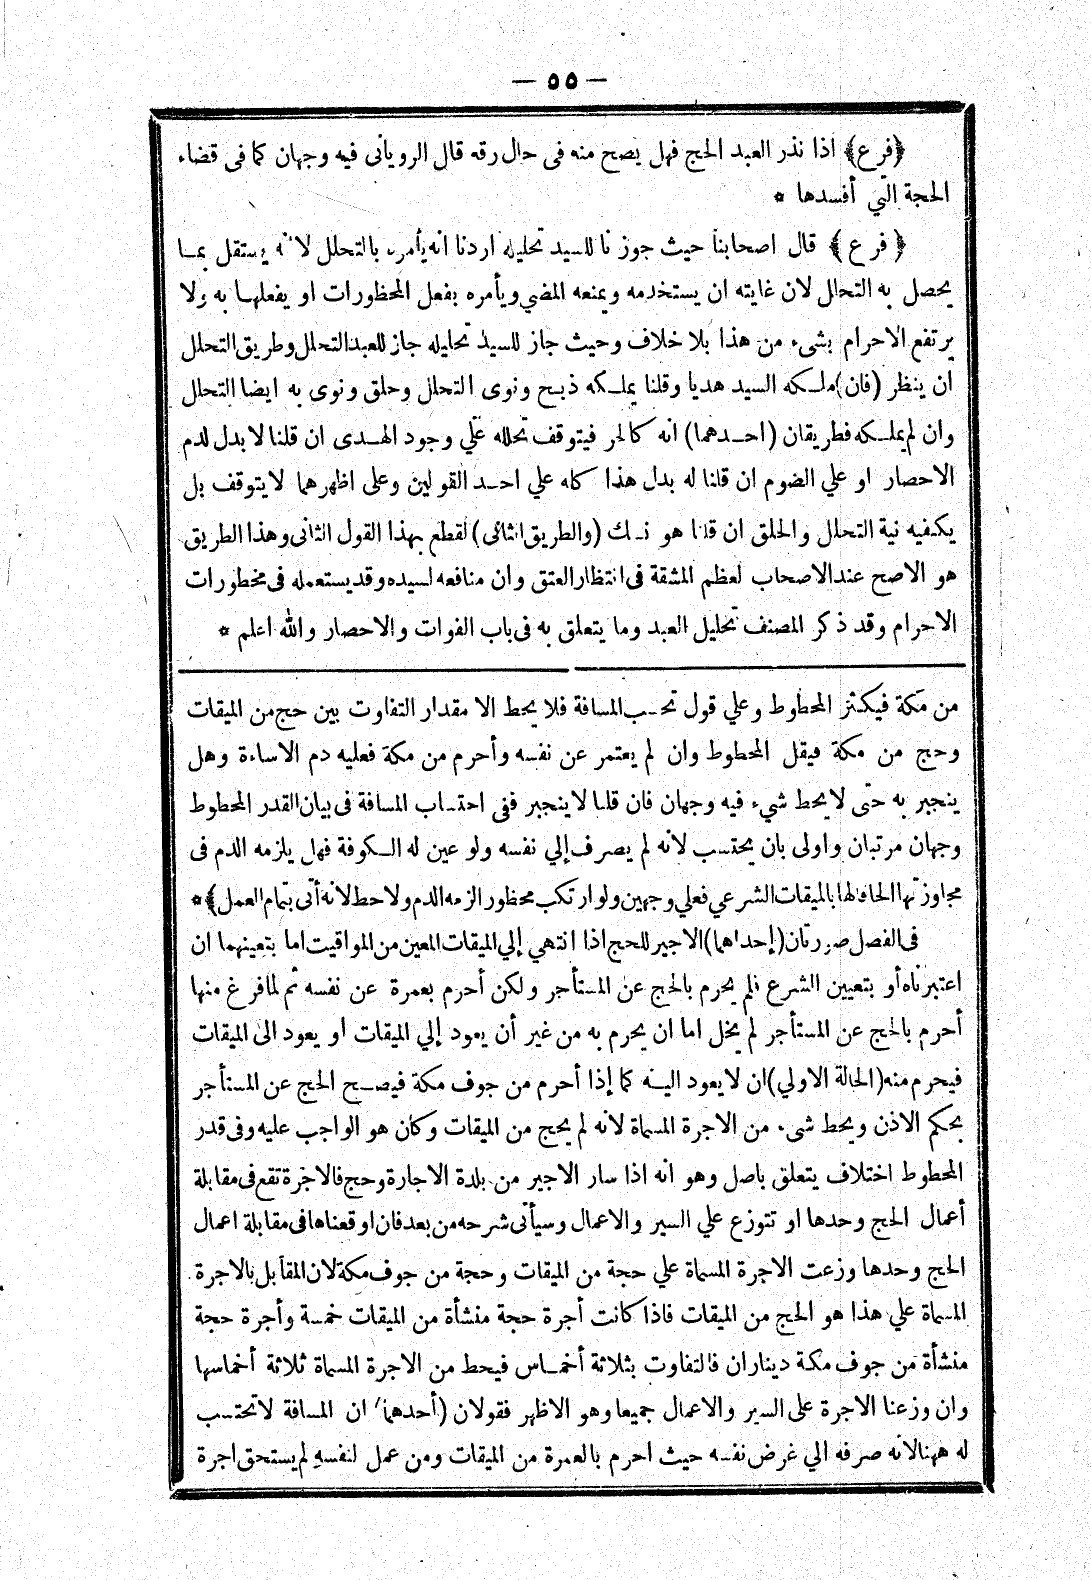 — ٥٥ —
﴿فرع﴾ اذا نذر العبد الحج فهل يصح منه فى حال رقه قال الرويانى فيه وجهان كما فى قضاء
الحجة التي أفسدها *
﴿فرع﴾ قال اصحابنا حيث جوزنا للسيد تحليله اردنا انه يأمره بالتحلل لانه يستقل بما
يحصل به التحلل لان غايته ان يستخدمه ويمنعه المضي ويأمره بفعل المحظورات او يفعلها به ولا
يرتفع الاحرام بشىء من هذا بلا خلاف وحيث جاز للسيد تحليله جاز للعبد التحلل وطريق التحلل
ان ينظر (فان) ملكه السيد هديا وقلنا يملكه ذبح ونوى التحلل وحلق ونوى به ايضا التحلل
وان لم يملكه فطريقان (احدهما) انه كالحر فيتوقف تحلله علي وجود الهدى ان قلنا لا بدل لدم
الاحصار او علي الضوم ان قلنا له بدل هذا كله علي احد القولين وعلى اظهرهما لا يتوقف بل
يكفيه نية التحلل والحلق ان قلنا هو نسك (والطريق الثانى) لقطع بهذا القول الثانى وهذا الطريق
هو الاصح عند الاصحاب لعظم المشقة فى انتظار العتق وان منافعه لسيده وقد يستعمله فى محظورات
الاحرام وقد ذكر المصنف تحليل العبد وما يتعلق به فى باب الفوات والاحصار والله اعلم *
من مكة فيكثر المحطوط وعلي قول تحسب المسافة فلا يحط الا مقدار التفاوت بين حج من الميقات
وحج من مكة فيقل المحطوط وان لم يعتمر عن نفسه وأحرم من مكة فعليه دم الاساءة وهل
ينجبر به حتى لا يحط شيء فيه وجهان فان قلنا لا ينجبر ففى احتساب المسافة فى بيان القدر المحطوط
وجهان مرتبان واولى بان يحتسب لانه لم يصرف إلي نفسه ولو عين له الكوفة فهل يلزمه الدم فى
مجاوزتها الحاقا لها بالميقات الشرعي فعلي وجهين ولو ارتكب محظورا لزمه الدم ولا حط لانه أتى بتمام العمل﴾ *
فى الفصل صورتان (إحداهما) الاجير للحج اذا انتهي إلي الميقات المعين من المواقيت اما بتعينهما ان
اعتبرناه أو بتعيين الشرع فلم يحرم بالحج عن المستأجر ولكن أحرم بعمرة عن نفسه ثم لما فرغ منها
أحرم بالحج عن المستأجر لم يخل اما ان يحرم به من غير أن يعود إلي الميقات أو يعود الى الميقات
فيحرم منه (الحالة الاولي) ان لا يعود اليه كما إذا أحرم من جوف مكة فيصح الحج عن المستأجر
بحكم الاذن ويحط شىء من الاجرة المسماة لانه لم يحج من الميقات وكان هو الواجب عليه وفى قدر
المحطوط اختلاف يتعلق باصل وهو انه اذا سار الاجير من بلدة الاجارة وحج فالاجرة تقع فى مقابلة
أعمال الحج وحدها او تتوزع علي السير والاعمال وسيأتى شرحه من بعد فان اوقعناها فى مقابلة اعمال
الحج وحدها وزعت الاجرة المسماة علي حجة من الميقات وحجة من جوف مكة لان المقابل بالاجرة
المسماة علي هذا هو الحج من الميقات فاذا كانت أجرة حجة منشأة من الميقات خمسة وأجرة حجة
منشأة من جوف مكة ديناران فالتفاوت بثلاثة أخماس فيحط من الاجرة المسماة ثلاثة أخماسها
وان وزعنا الاجرة على السير والاعمال جميعا وهو الاظهر فقولان (أحدهما) ان المسافة لا تحتسب
له ههنا لانه صرفه الي غرض نفسه حيث احرم بالعمرة من الميقات ومن عمل لنفسه لم يستحق اجرة